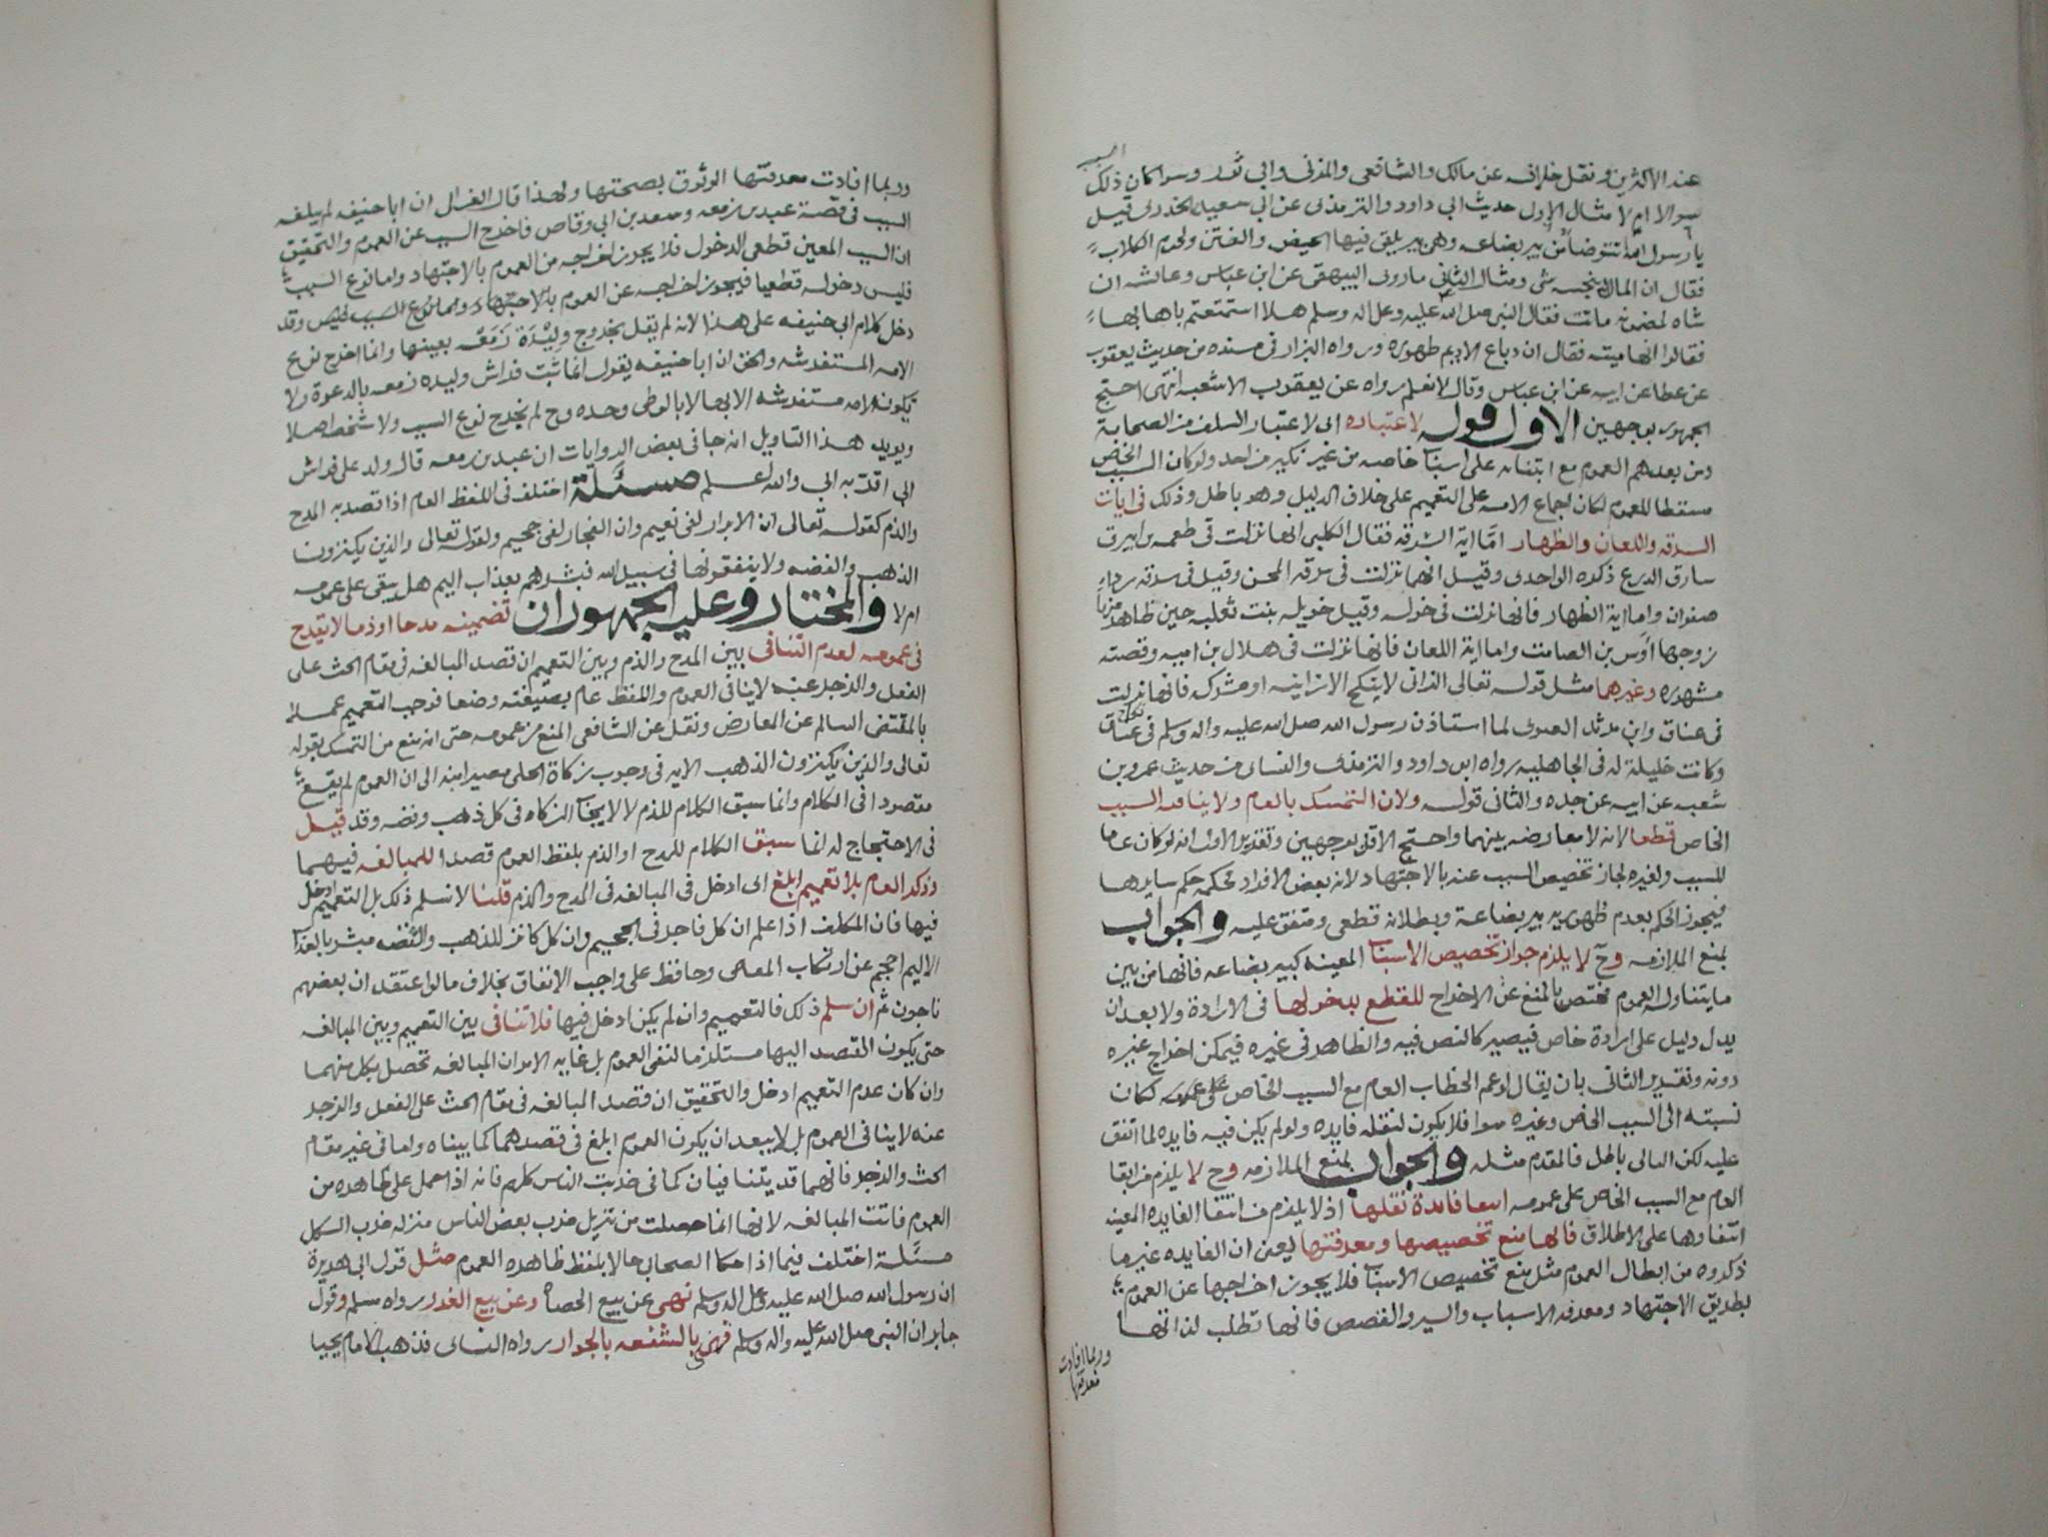 السبب
عند الاكثرين ونقل خلافه عن مالك والشافعي والمزني وابي ثور وسوا كان ذلك
سوالا ام لا مثال الاول حديث ابي داود والترمذي عن ابي سعيد الخدري قيل
يا رسول الله انتوضا من بير بضاعه وهي بير يلقى فيها الحيض والنتن ولحوم الكلاب
فقال ان الما لا ينجسه شي ومثال الثاني ما روى البيهقي عن ابن عباس وعائشه ان
شاه لميمونه ماتت فقال النبي صلى الله عليه وعلى اله وسلم هلا استمتعتم باهابها
فقالوا انها ميته فقال ان دباغ الاديم طهوره ورواه البزار في مسنده من حديث يعقوب
عن عطا عن ابيه عن ابن عباس وقال لا نعلم رواه عن يعقوب الا شعبه انتهى احتج
الجمهور بوجهين الاول قوله لاعتباره اي لاعتبار السلف من الصحابة
ومن بعدهم العموم مع ابتنائه على اسباب خاصه من غير نكير من احد ولو كان السبب الخاص
مسقطا للعموم لكان اجماع الامه على التعميم على خلاف الدليل وهو باطل وذلك في ايات
السرقه واللعان والظهار امّا اية السرقه فقال الكلبي انها نزلت في طعمه بن ابيرق
سارق الدرع ذكره الواحدي وقيل انها نزلت في سرقه المجن وقيل في سرقه رداء
صفوان واما اية الظهار فانها نزلت في خوله وقيل خويله بنت ثعلبه حين ظاهر منها
زوجها اوس بن الصامت واما اية اللعان فانها نزلت في هلال بن اميه وقصته
مشهوره وغيرها مثل قوله تعالى الزاني لا ينكح الا زانيه او مشركه فانها نزلت
في عناق وابي مرثد الغنوي لما استاذن رسول الله صلى الله عليه واله وسلم في نكاح عناق
وكانت خليلة له في الجاهليه رواه ابو داود والترمذي والنسائي من حديث عمرو بن
شعيب عن ابيه عن جده والثاني قوله ولان التمسك بالعام ولا ينافيه السبب
الخاص قطعا لانه لا معارضه بينهما واحتج الاقل بوجهين وتقدير الاول انه لو كان عاما
للسبب ولغيره لجاز تخصيص السبب عنه بالاجتهاد لانه بعض الافراد محكمه حكم سايرها
فيجوز الحكم بعدم طهوريه بير بضاعة وبطلانه قطعي ومتفق عليه والجواب
بمنع الملازمه وح لا يلزم جواز تخصيص الاسباب المعينه كبير بضاعه فانها من بين
ما يتناوله العموم مختص بالمنع عن الاخراج للقطع بدخولها في الارادة ولا بعد ان
يدل دليل على ارادة خاص فيصير كالنص فيه والظاهر في غيره فيمكن اخراج غيره
دونه وتقدير الثاني بان يقال لو عم الخطاب العام مع السبب الخاص على عمومه لكان
نسبته الى السبب الخاص وغيره سوا فلا يكون لنقله فايده ولو لم يكن فيه فايده لما اتفق
عليه لكن التالي باطل فالمقدم مثله والجواب بمنع الملازمه وح لا يلزم من ابقا
العام مع السبب الخاص على عمومه انتفا فايدة نقلها اذ لا يلزم من انتفا الفايده المعينه
انتفاوها على الاطلاق فانها منع تخصيصها ومعرفتها يعني ان الفايده غير ما
ذكروه من ابطال العموم مثل منع تخصيص الاسباب فلا يجوز اخراجها عن العموم
بطريق الاجتهاد ومعرفه الاسباب والسير والقصص فانها تطلب لذاتها
وربما افادت
معرفتها
وربما افادت معرفتها الوثوق بصحتها ولهذا قال الغزالي ان ابا حنيفه لم يبلغه
السبب في قصة عبد بن زمعه وسعد بن ابي وقاص فاخرج السبب عن العموم والتحقيق
ان السبب المعين قطعي الدخول فلا يجوز اخراجه من العموم بالاجتهاد واما نوع السبب
فليس دخوله قطعيا فيجوز اخراجه عن العموم بالاجتهاد وقد
دخل كلام ابي حنيفه على هذا لانه لم يقل بخروج وليدة زمعه بعينها وانما اخرج نوع
الامه المستفرشه والحق ان ابا حنيفه يقول انما ثبت فراش وليده زمعه بالدعوة ولا
تكون الامه مستفرشه الا بها لا بالوطي وحده وح لم يخرج نوع السبب ولا شخصه اصلا
ويويد هذا التاويل انه جا في بعض الروايات ان عبد بن زمعه قال ولد على فراش
ابي اقرّ به ابي والله اعلم مسئلة اختلف في اللفظ العام اذا قصد به المدح
والذم كقوله تعالى ان الابرار لفي نعيم وان الفجار لفي جحيم ولقوله تعالى والذين يكنزون
الذهب والفضه ولا ينفقونها في سبيل الله فبشرهم بعذاب اليم هل يبقى على عمومه
ام لا والمختار وعليه الجمهور ان تضمينه مدحا او ذما لا يقدح
في عمومه لعدم التنافي بين المدح والذم وبين التعميم ان قصد المبالغه في مقام الحث على
الفعل والزجر عنه لا ينافي العموم واللفظ عام بصيغته وضعا فوجب التعميم عملا
بالمقتضي السالم عن المعارض ونقل عن الشافعي المنع من عمومه حتى انه منع من التمسك بقوله
تعالى والذين يكنزون الذهب الايه في وجوب زكاة الحلي مصيرا منه الى ان العموم لم يقع
مقصودا في الكلام وانما سيق الكلام للذم لا لايجاب الزكاه في كل ذهب وفضه وقد قيل
في الاحتجاج له انما سيق الكلام للمدح او الذم بلفظ العموم قصدا للمبالغه فيهما
وذكر العام بلا تعميم ابلغ اي ادخل في المبالغه في المدح والذم قلنا لا نسلم ذلك بل التعميم ادخل
فيها فان المكلف اذا علم ان كل فاجر في الجحيم وان كل كانز للذهب والفضه مبشر بالعذاب
الاليم احجم عن ارتكاب المعاصي وحافظ على واجب الانفاق بخلاف ما لو اعتقد ان بعضهم
ناجون ثم ان سلم ذلك فالتعميم وان لم يكن ادخل فيها فلا تنافي بين التعميم وبين المبالغه
حتى يكون القصد اليها مستلزما لنفي العموم بل غايه الامر ان المبالغه تحصل بكل منهما
وان كان عدم التعميم ادخل والتحقيق ان قصد المبالغه في مقام الحث على الفعل والزجر
عنه لا ينافي العموم بل لا يبعد ان يكون العموم ابلغ في قصدهما كما بيناه واما في غير مقام
الحث والزجر فانهما قد يتنافيان كما في ضربت الناس كلهم فانه اذا عمل على ظاهره من
العموم فاتت المبالغه لانها انما حصلت من تنزيل ضرب بعض الناس منزله ضرب الكل
مسئلة اختلف فيما اذا حكا الصحابي حالا بلفظ ظاهره العموم مثل قول ابي هريرة
ان رسول الله صلى الله عليه وعلى اله وسلم نهى عن بيع الحصاه وعن بيع الغرر رواه مسلم وقول
جابر ان النبي صلى الله عليه واله وسلم قضى بالشفعه بالجوار رواه النسائي فذهب الامام يحيا